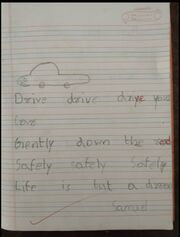 Drive drive drive your
Car
Gently down the road
Safely safely Safely
Life is but a dream
Samuel